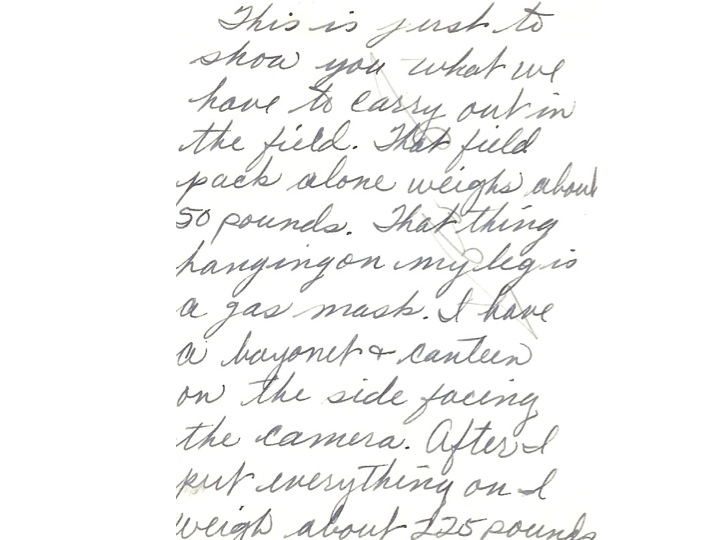 This is just to
show you what we
have to carry out in
the field. That field
pack alone weighs about
50 pounds. That thing
hanging on my leg is
a gas mask. I have
a bayonet & canteen
on the side facing
the camera. After I
put everything on I
weigh about 225 pounds